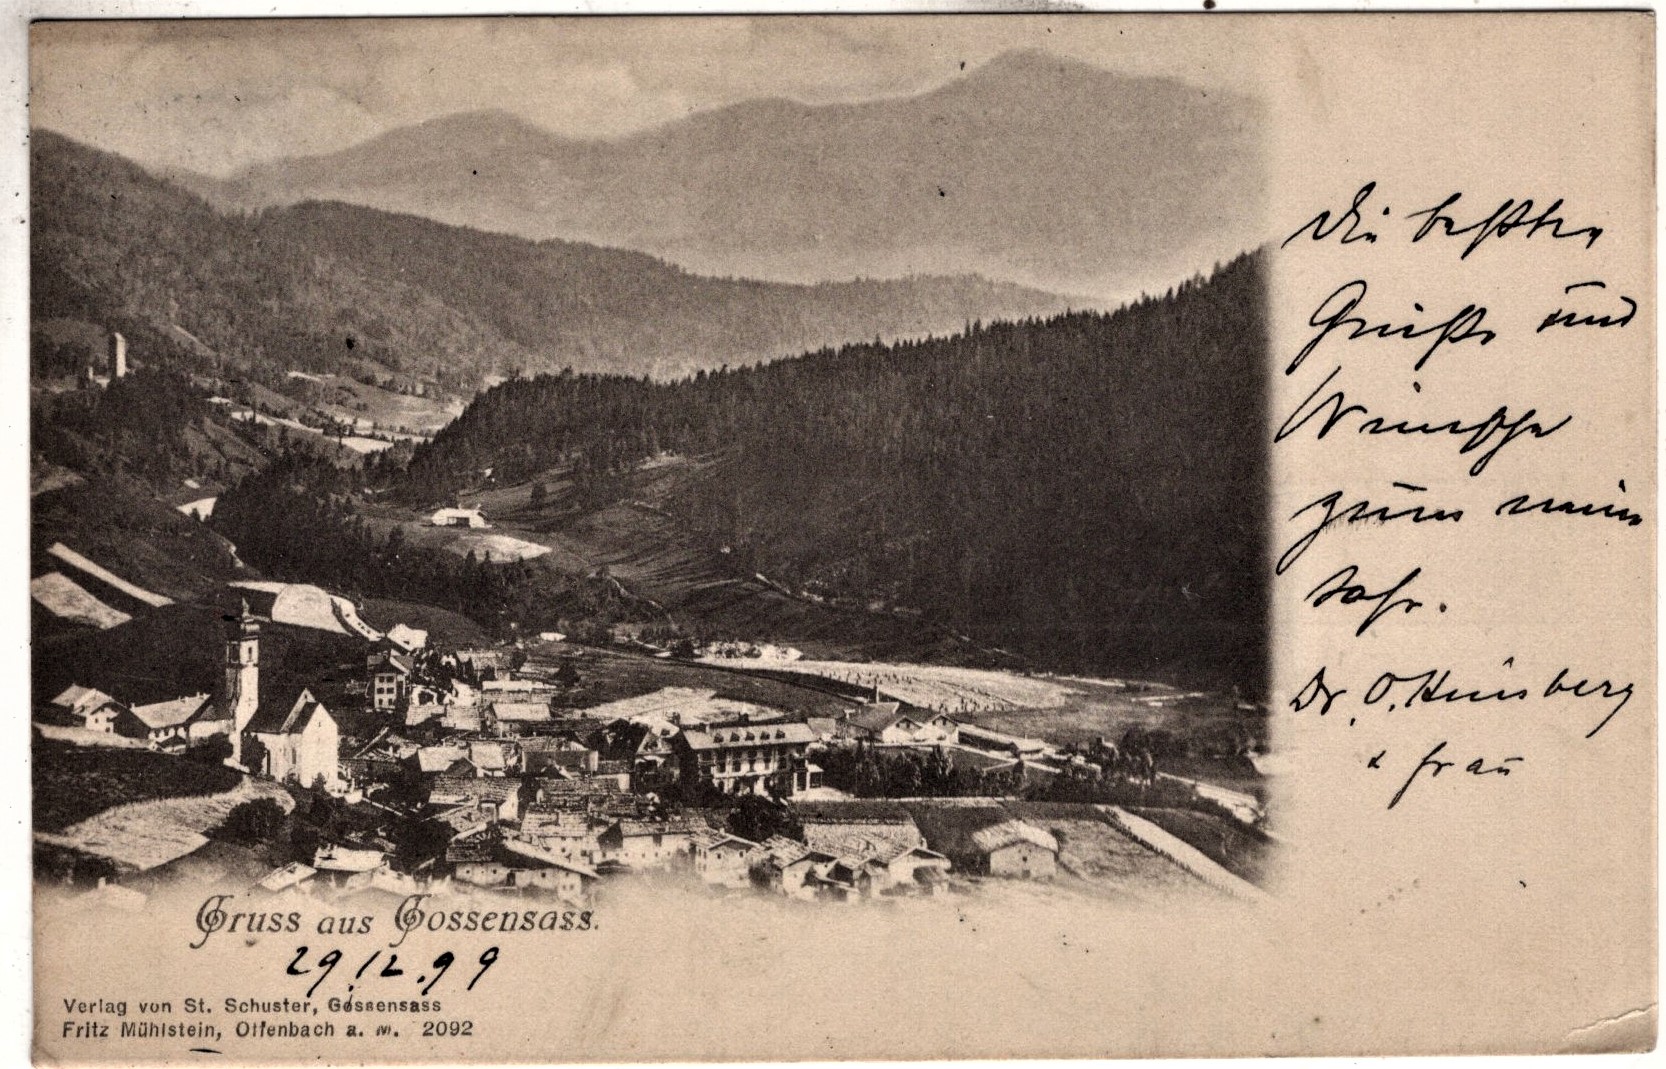 Die besten
Grüße und
Wünsche
zum neuen
Jahr.
Dr. O. Hinsberg
& Frau
Gruss aus Gossensass.
29.12.99
Verlag von St. Schuster, Gossensass
Fritz Mühlstein, Offenbach a. M. 2092